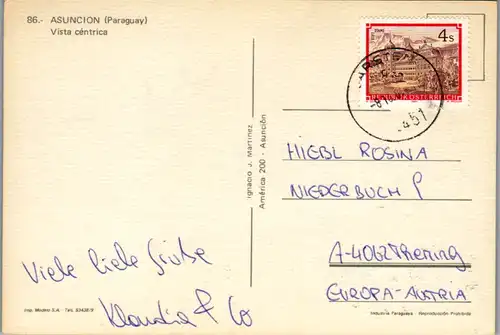 86.- ASUNCION (Paraguay)
Vista céntrica
4s
REPUBLIK ÖSTERREICH
3451
Ignacio J. Martínez
América 200 - Asunción
HIEBL ROSINA
NIEDERBUCH 9
A-4062 Thening
EUROPA-AUSTRIA
Viele liebe Grüße
Klaudia & Co
Imp. Modelo S.A. - Tels.
Industria Paraguaya - Reproducción Prohibida